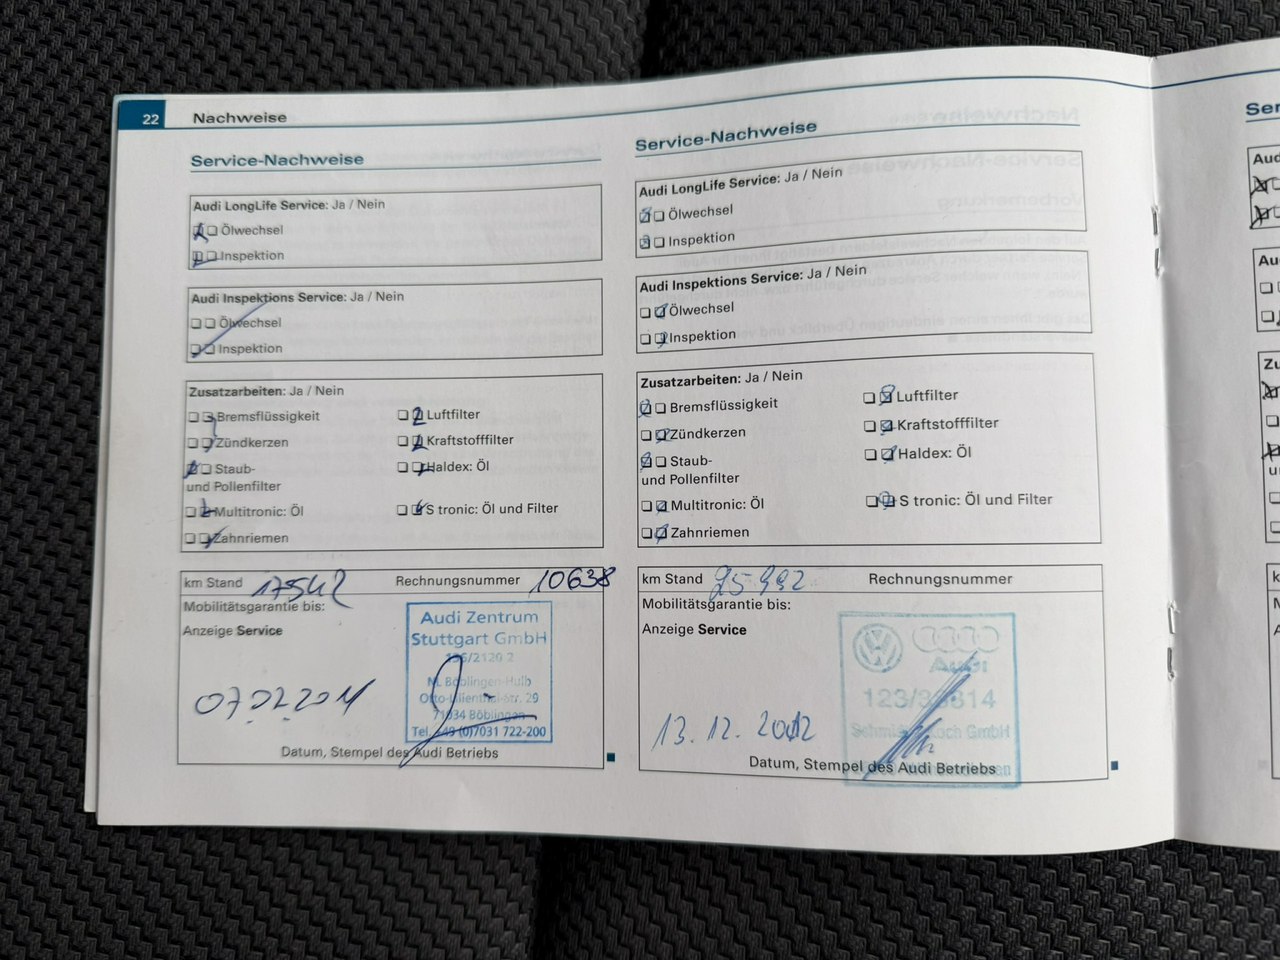 22 Nachweise
Service-Nachweise
Audi LongLife Service: Ja / Nein
Ölwechsel
Inspektion
Audi Inspektions Service: Ja / Nein
Ölwechsel
Inspektion
Zusatzarbeiten: Ja / Nein
Bremsflüssigkeit
Luftfilter
Zündkerzen
Kraftstofffilter
Staub-
und Pollenfilter
Haldex: Öl
Multitronic: Öl
S tronic: Öl und Filter
Zahnriemen
km Stand 17542 Rechnungsnummer 10638
Mobilitätsgarantie bis:
Anzeige Service
Audi Zentrum
Stuttgart GmbH
NL Böblingen-Hulb
Otto-Lilienthal-Str. 29
71034 Böblingen
Tel. +49 (0)7031 722-200
07.02.2011
Datum, Stempel des Audi Betriebs
Service-Nachweise
Audi LongLife Service: Ja / Nein
Ölwechsel
Inspektion
Audi Inspektions Service: Ja / Nein
Ölwechsel
Inspektion
Zusatzarbeiten: Ja / Nein
Bremsflüssigkeit
Luftfilter
Zündkerzen
Kraftstofffilter
Staub-
und Pollenfilter
Haldex: Öl
Multitronic: Öl
S tronic: Öl und Filter
Zahnriemen
km Stand Rechnungsnummer
Mobilitätsgarantie bis:
Anzeige Service
Audi
GmbH
13.12.2012
Datum, Stempel des Audi Betriebs